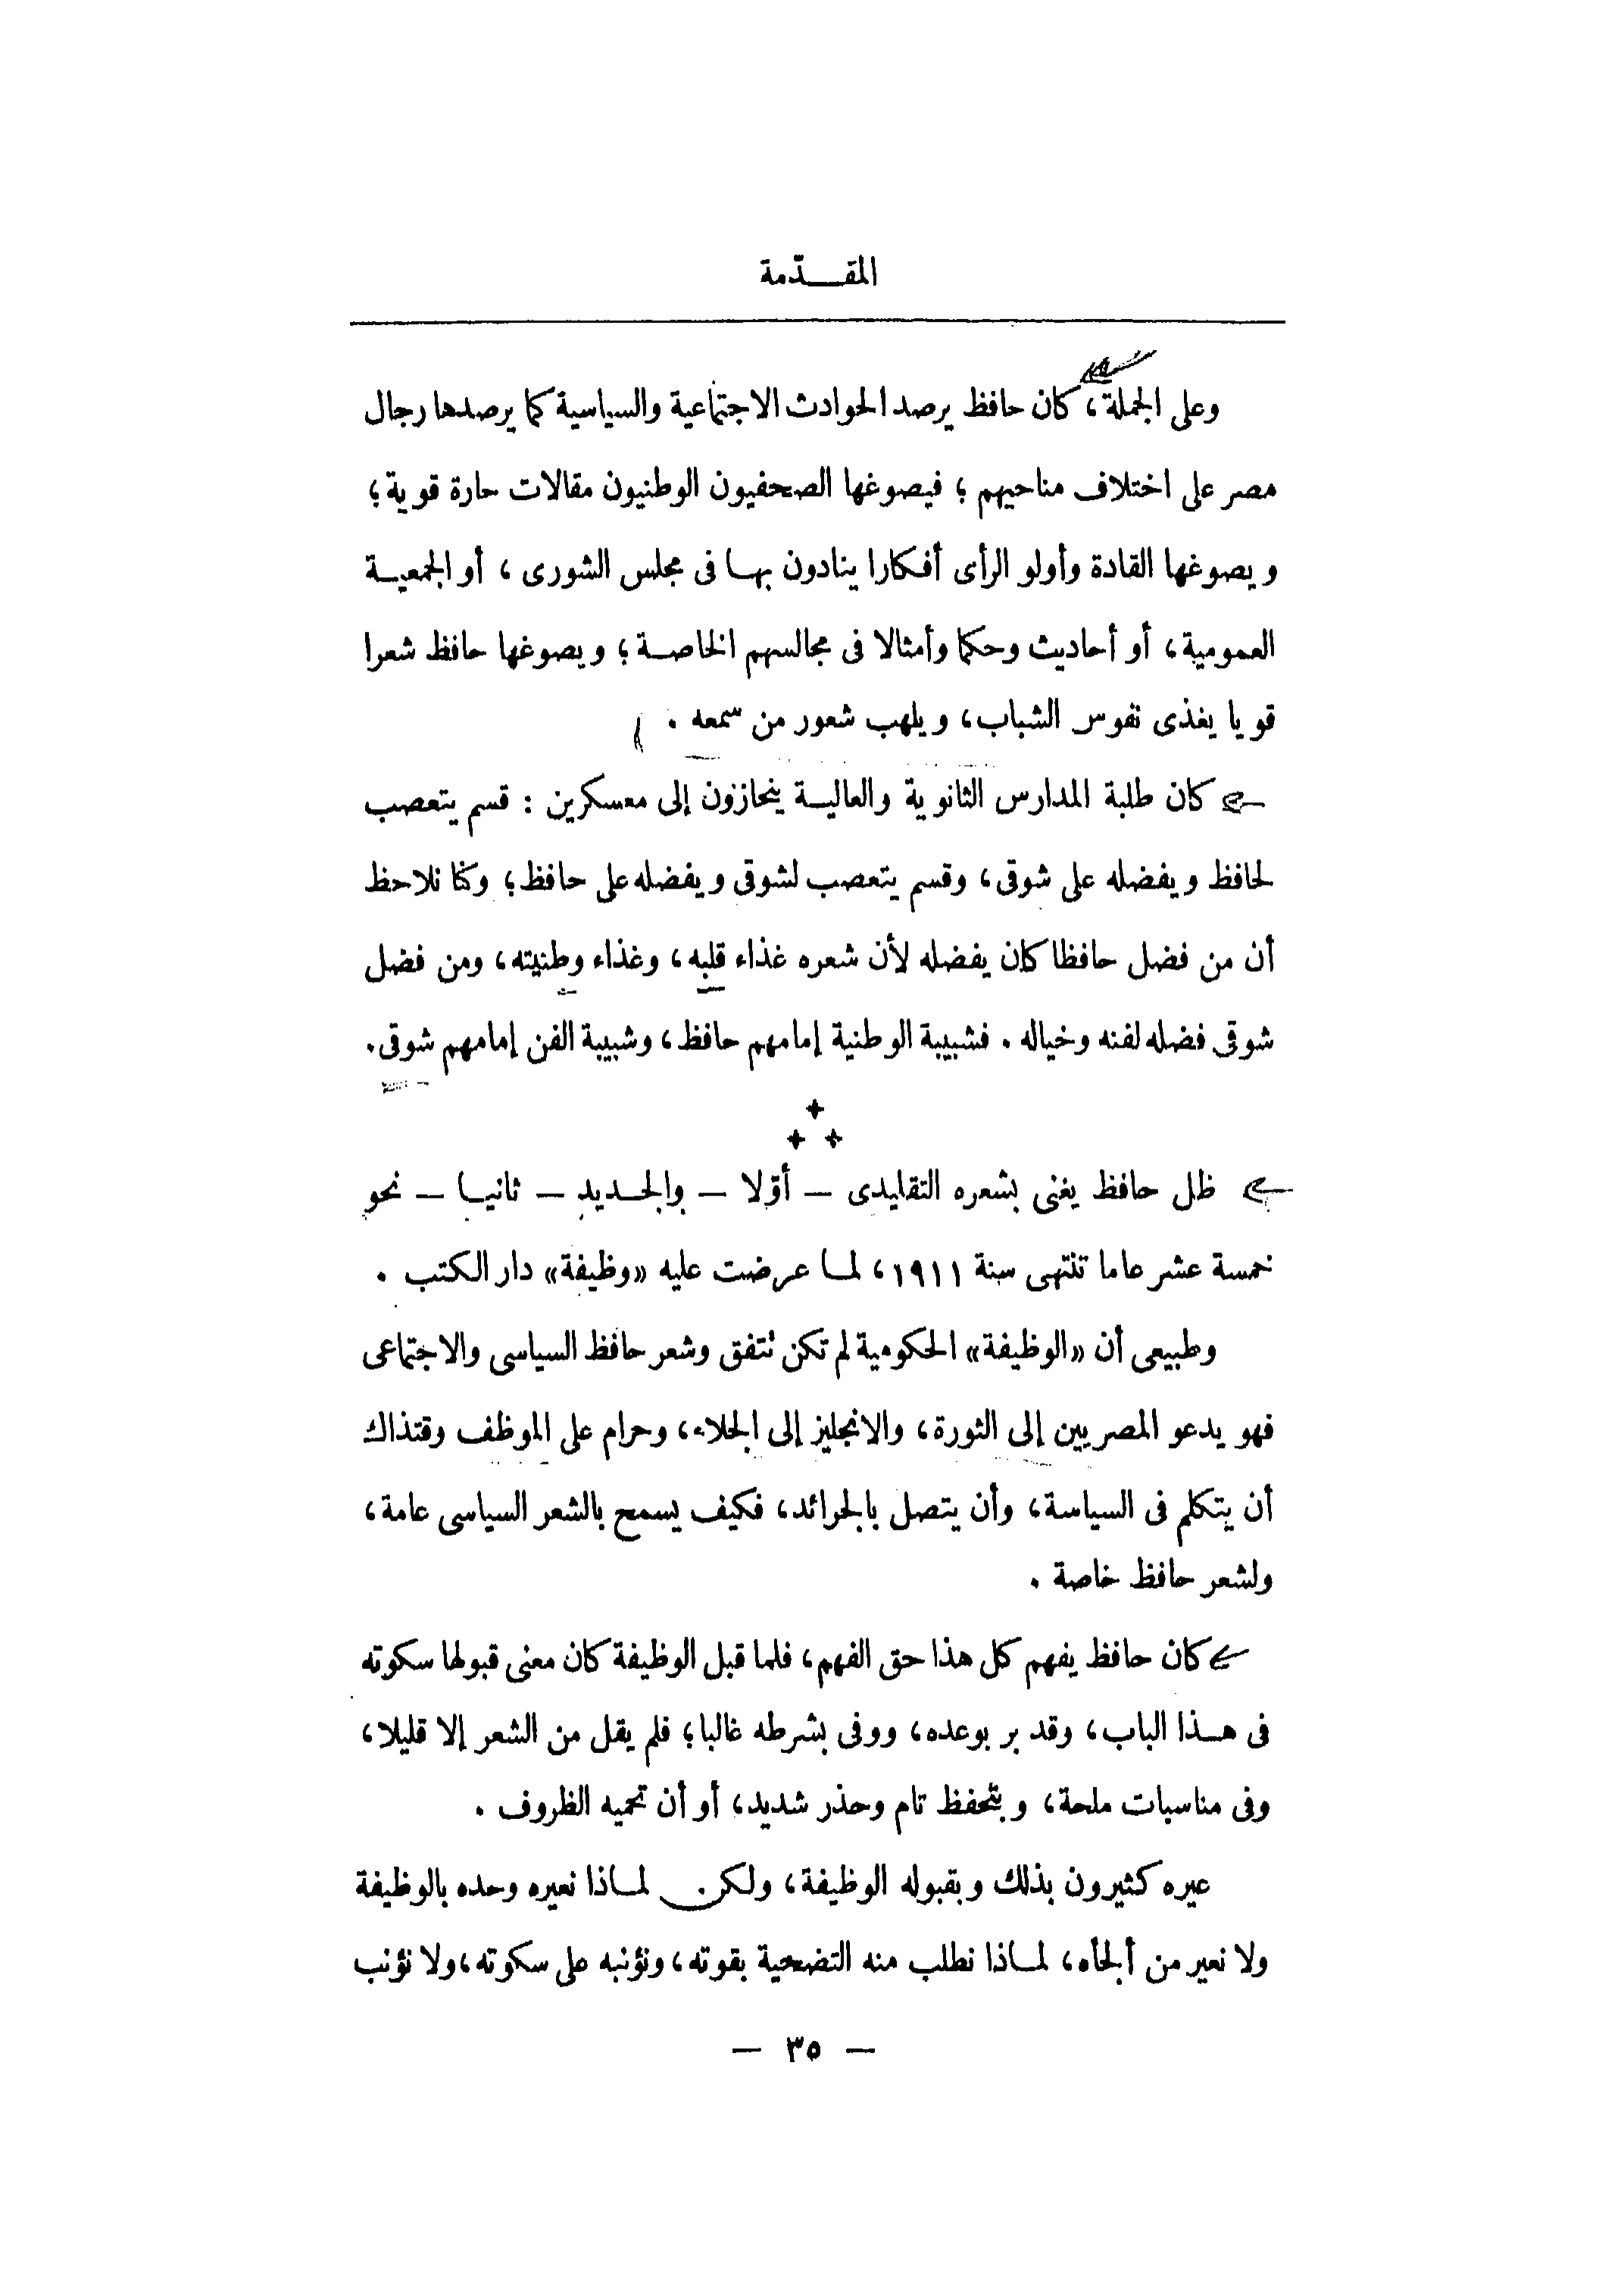 المقدّمة
وعلى الجملة، كان حافظ يرصد الحوادث الاجتماعية والسياسية كما يرصدها رجال
مصر على اختلاف مناحيهم؛ فيصوغها الصحفيون الوطنيون مقالات حارة قوية؛
ويصوغها القادة وأولو الرأى أفكارا ينادون بها فى مجلس الشورى، أو الجمعية
العمومية، أو أحاديث وحكما وأمثالا فى مجالسهم الخاصة؛ ويصوغها حافظ شعرا
قويا يغذى نفوس الشباب، ويلهب شعور من سمعه.
كان طلبة المدارس الثانوية والعالية ينحازون إلى معسكرين: قسم يتعصب
لحافظ ويفضله على شوقى، وقسم يتعصب لشوقى ويفضله على حافظ؛ وكنا نلاحظ
أن من فضل حافظا كان يفضله لأن شعره غذاء قلبه، وغذاء وطنيته، ومن فضل
شوقى فضله لفنه وخياله. فشبيبة الوطنية إمامهم حافظ، وشبيبة الفن إمامهم شوقى.
ظل حافظ يغنى بشعره التقليدى — أوّلا — والجديد — ثانيا — نحو
خمسة عشر عاما تنتهى سنة ١٩١١، لما عرضت عليه «وظيفة» دار الكتب.
وطبيعى أن «الوظيفة» الحكومية لم تكن تتفق وشعر حافظ السياسى والاجتماعى
فهو يدعو المصريين إلى الثورة، والانجليز إلى الجلاء، وحرام على الموظف وقتذاك
أن يتكلم فى السياسة، وأن يتصل بالجرائد، فكيف يسمح بالشعر السياسى عامة،
ولشعر حافظ خاصة.
كان حافظ يفهم كل هذا حق الفهم، فلما قبل الوظيفة كان معنى قبولها سكوته
فى هذا الباب، وقد بر بوعده، ووفى بشرطه غالبا؛ فلم يقل من الشعر إلا قليلا،
وفى مناسبات ملحة، وبتحفظ تام وحذر شديد، أو أن تحميه الظروف.
عيره كثيرون بذلك وبقبوله الوظيفة، ولكن لماذا نعيره وحده بالوظيفة
ولا نعير من ألجأه، لماذا نطلب منه التضحية بقوته، ونؤنبه على سكوته، ولا نؤنب
— ٣٥ —